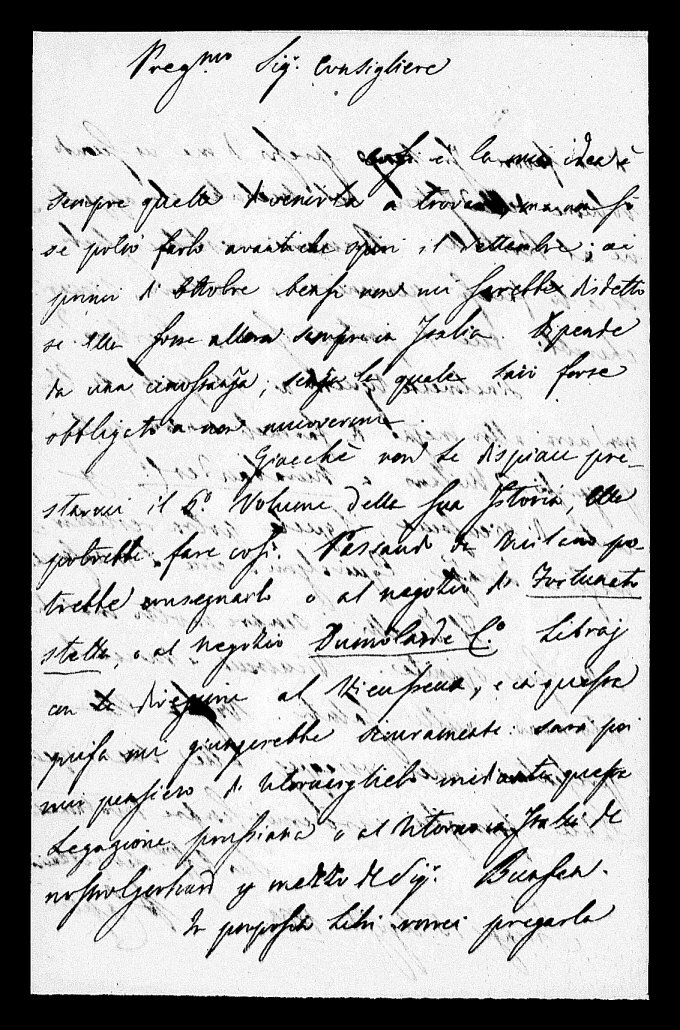 Preg.mo Sig.r Consigliere
è la mia idea è
sempre quella di venirla a trovare, ma non so
se potrò farlo avanti che spiri il settembre; ai
primi di Ottobre bensì non mi sarebbe disdetto
se Ella fosse allora sempre in Italia. Dipende
da una circostanza, senza la quale sarò forse
obbligato a non muovermi.
Giacchè non Le dispiace pre-
starmi il 5.o Volume della sua Istoria, Ella
potrebbe fare così. Passando da Milano po-
trebbe consegnarlo o al negozio di Fortunato
Stella, o al negozio Dumolard e C.o Libraj
con la direzione al Vieusseux, e in questa
guisa mi giungerebbe sicuramente: sarà poi
mio pensiero di ritornarglielo mediante questa
Legazione prussiana o al ritorno in Italia del
nostro Gerhard o mezzo del Sig.r Bunsen.
In proposito Libri vorrei pregarla